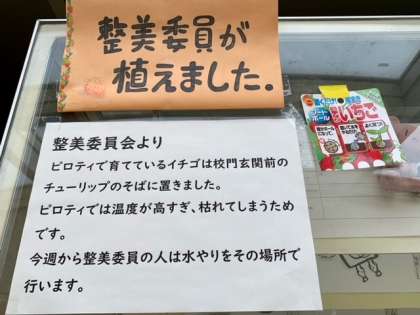 整美委員が
植えました.
いちご
整美委員会より
ピロティで育てているイチゴは校門玄関前の
チューリップのそばに置きました。
ピロティでは温度が高すぎ、枯れてしまうため
です。
今週から整美委員の人は水やりをその場所で
行います。